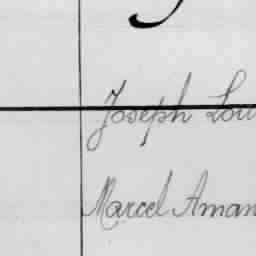 Joseph Lou
Marcel Aman